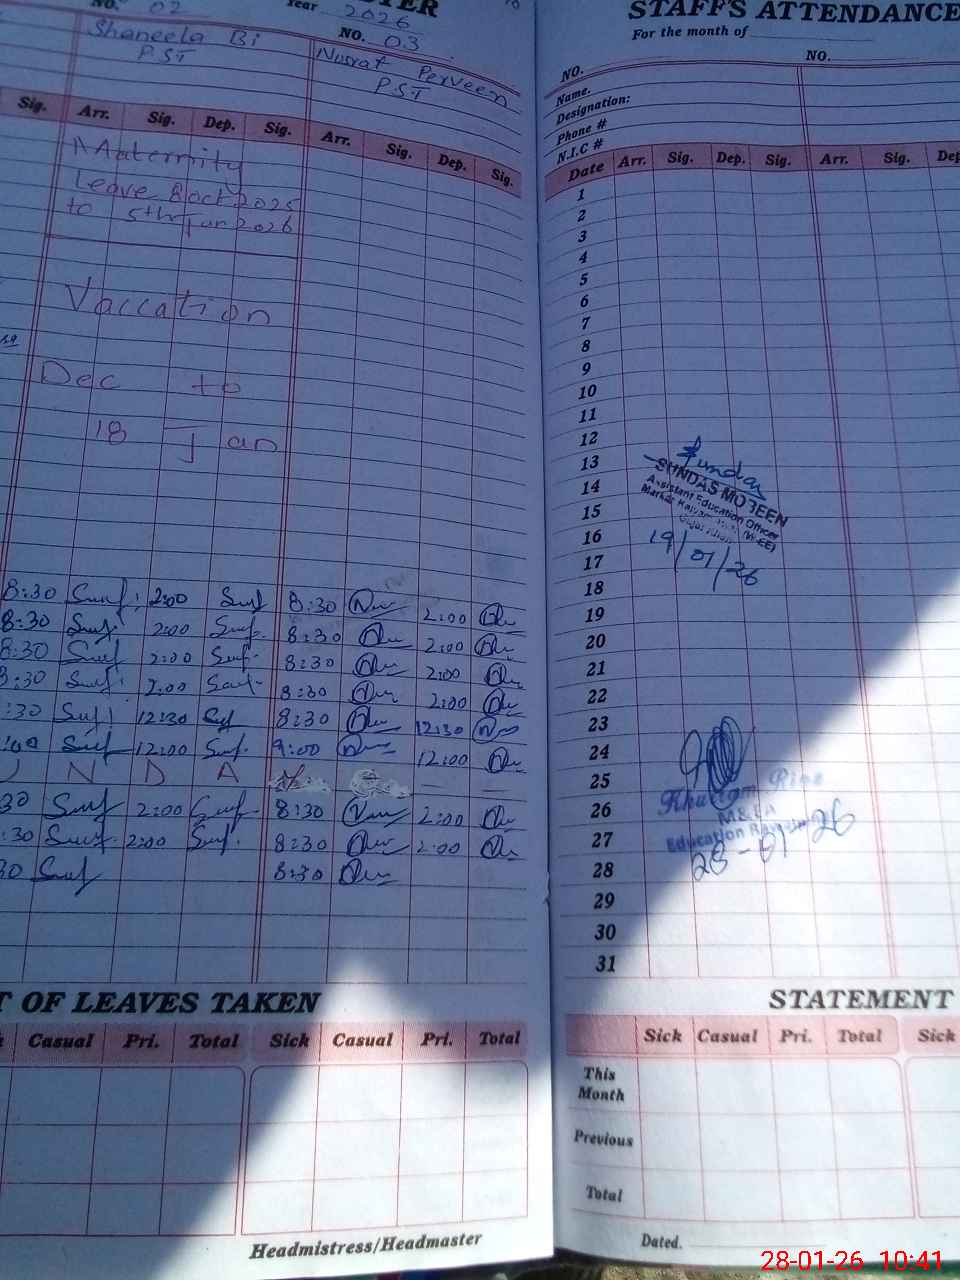 NO. 02
TER
Year 2026
Shaneela Bi
PST
NO. 03
Nusrat Perveen
PST
Sig. Arr. Sig. Dep. Sig. Arr. Sig. Dep. Sig.
Maternity
Leave 8 oct 2025
to 5th Jan 2026
Vaccation
Dec to
18 Jan
8:30 2:00 8:30 2:00
8:30 2:00 8:30 2:00
8:30 2:00 8:30 2:00
8:30 2:00 8:30 2:00
:30 12:30 8:30 12:30
:00 12:00 9:00 12:00
U N D A
30 2:00 8:30 2:00
:30 2:00 8:30 2:00
30 8:30
T OF LEAVES TAKEN
Casual Pri. Total Sick Casual Pri. Total
Headmistress/Headmaster
STAFF'S ATTENDANCE
For the month of
NO. NO.
Name.
Designation:
Phone #
N.I.C #
Date Arr. Sig. Dep. Sig. Arr. Sig. Dep
1
2
3
4
5
6
7
8
9
10
11
12
13
14
15
16
17
18
19
20
21
22
23
24
25
26
27
28
29
30
31
Sundas
SUNDAS MOBEEN
Assistant Education Officer
19/01/26
Khurram Riaz
M&EA
Education
28-01-26
STATEMENT
Sick Casual Pri. Total Sick
This
Month
Previous
Total
Dated.
28-01-26 10:41